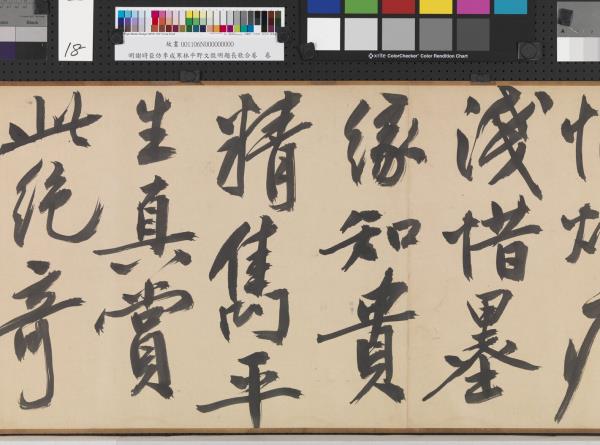 Black
18-
故畫 001106N000000000
明謝時臣仿李成寒林平野文徵明題長歌合卷 卷
x-rite ColorChecker Color Rendition Chart
淺惜墨
緣知貴
精雋平
生真賞
此絕奇